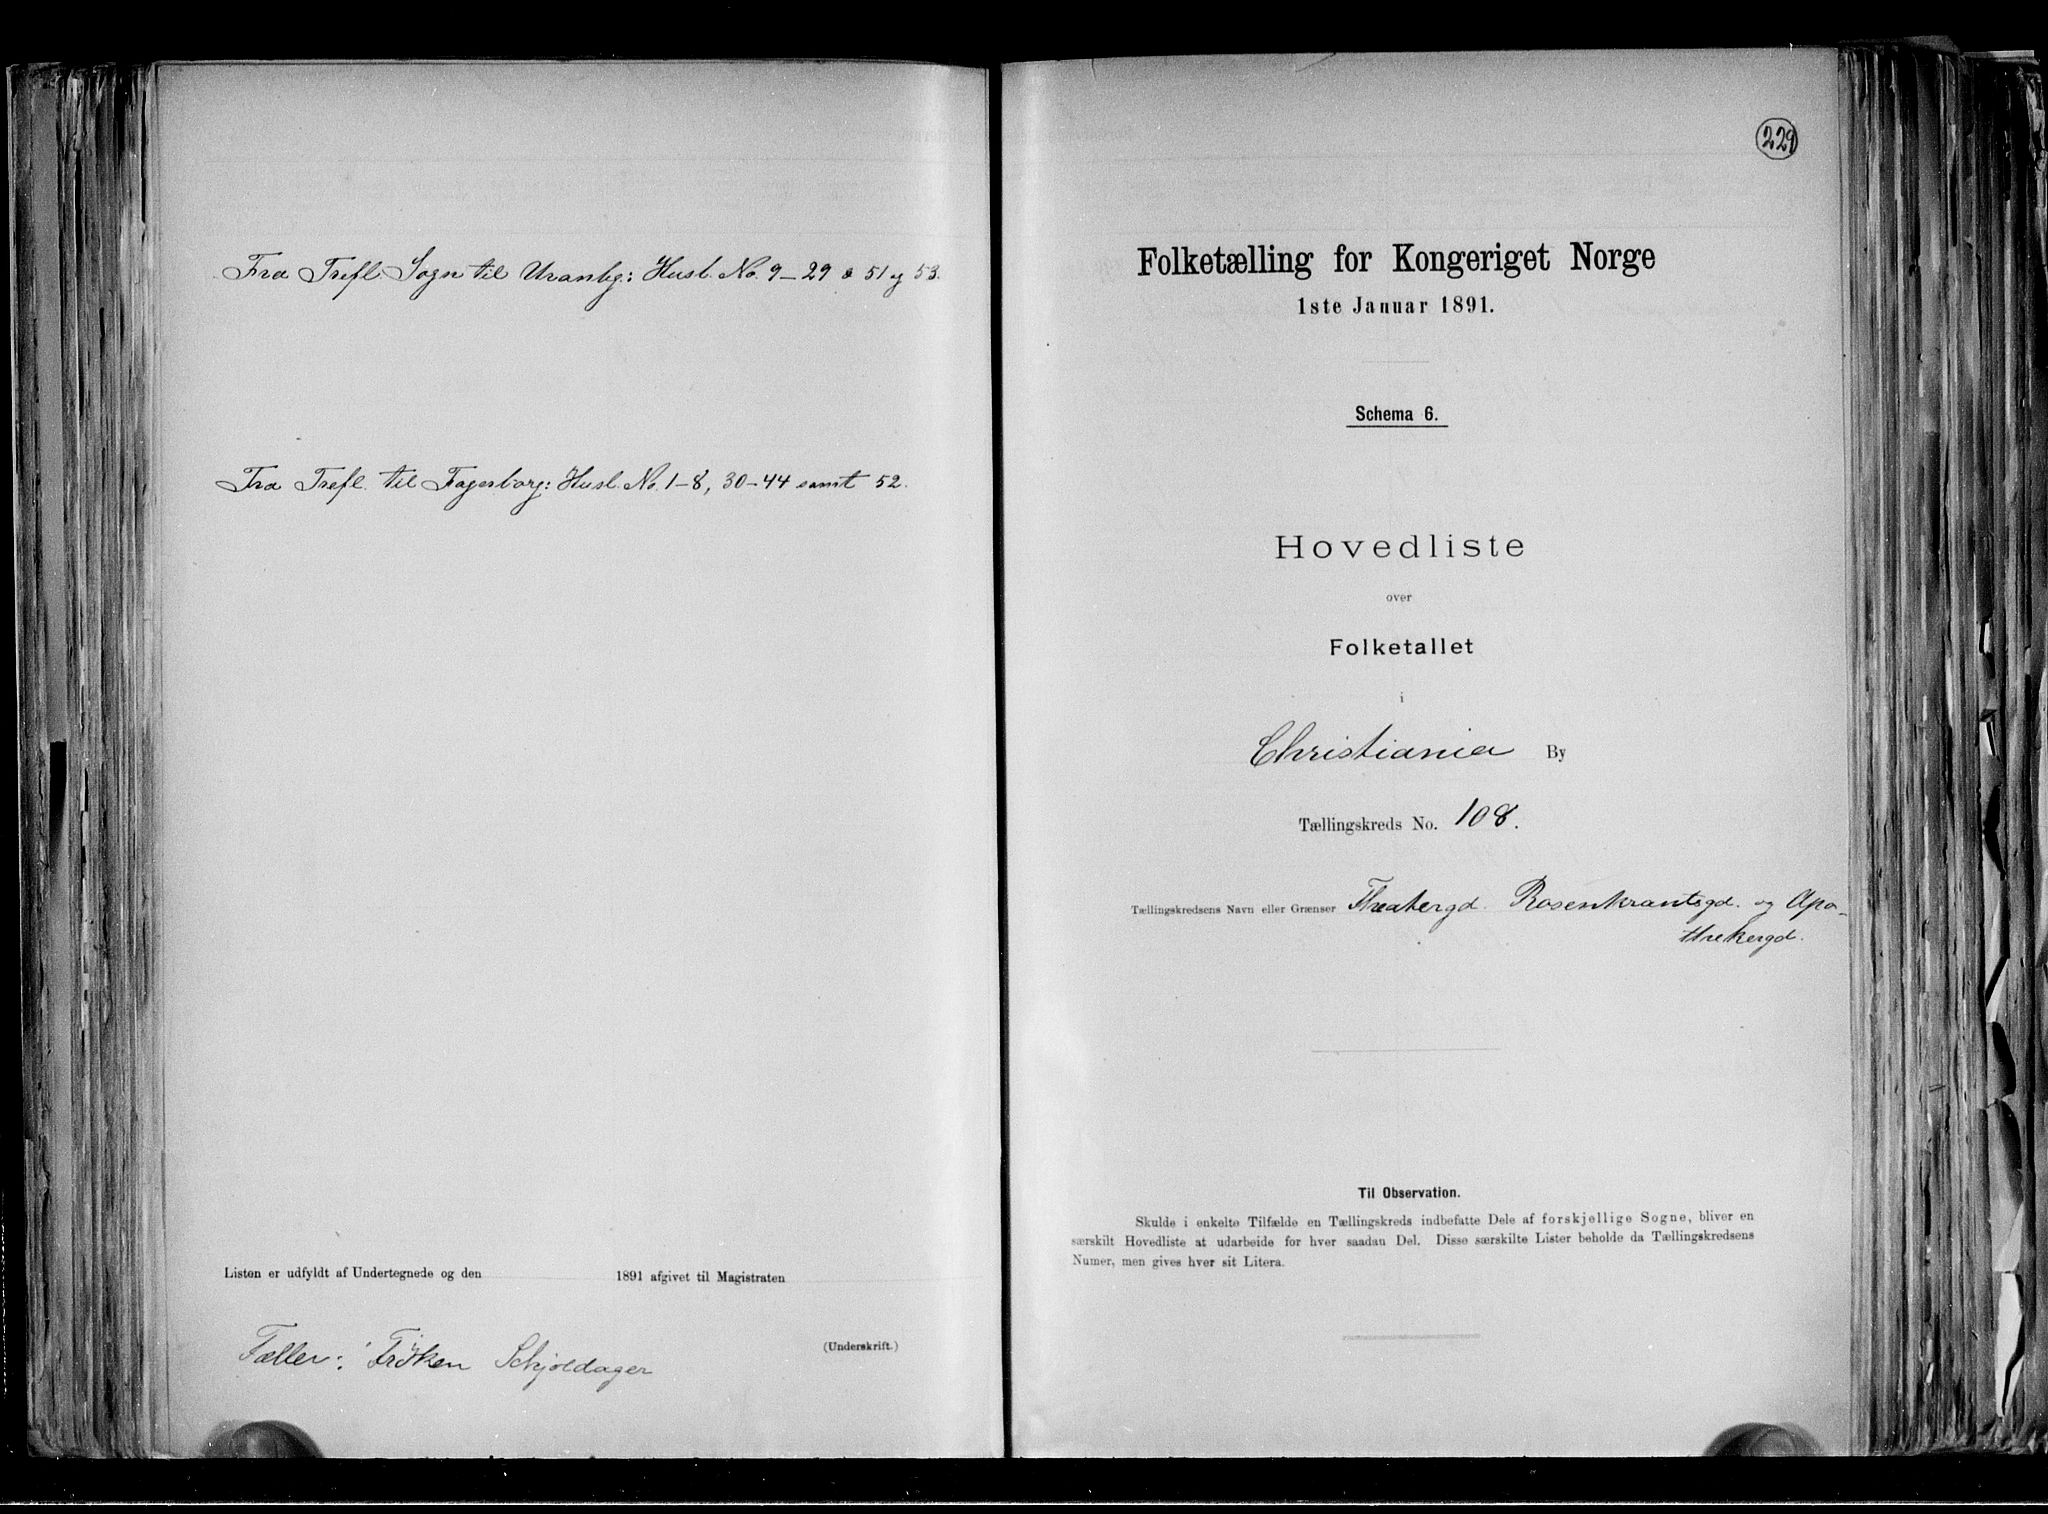 Fra Trefl. Sogn til Uranbg: Husl. No. 9–29 o 51 og 53.
Fra Trefl. til Fagerborg: Husl. No. 1–8, 30–44 samt 52.
Listen er udfyldt af Undertegnede og den 1891 afgivet til Magistraten
Tæller: Frøken Schjoldager
(Underskrift.)
229
Folketælling for Kongeriget Norge
1ste Januar 1891.
Schema 6.
Hovedliste
over
Folketallet
i
Christiania By
Tællingskreds No. 108.
Tællingskredsens Navn eller Grænser Theatergd. Rosenkrantsgd. og Apo-
thekergd.
Til Observation.
Skulde i enkelte Tilfælde en Tællingskreds indbefatte Dele af forskjellige Sogne, bliver en
særskilt Hovedliste at udarbeide for hver saadan Del. Disse særskilte Lister beholde da Tællingskredsens
Numer, men gives hver sit Litera.